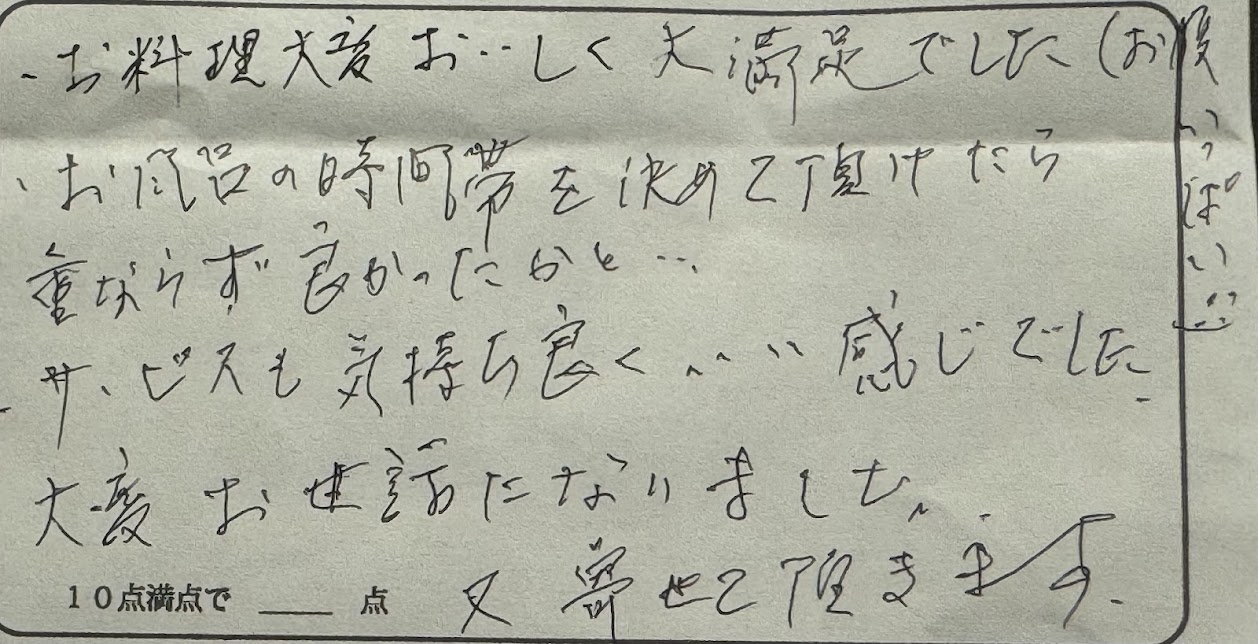 ・お料理大変おいしく大満足でした（お腹いっぱい…）
・お風呂の時間帯を決めて頂けたら
重ならず良かったかと…
・サービスも気持ち良くいい感じでした
大変お世話になりました。
10点満点で ＿＿ 点 又寄せて頂きます。